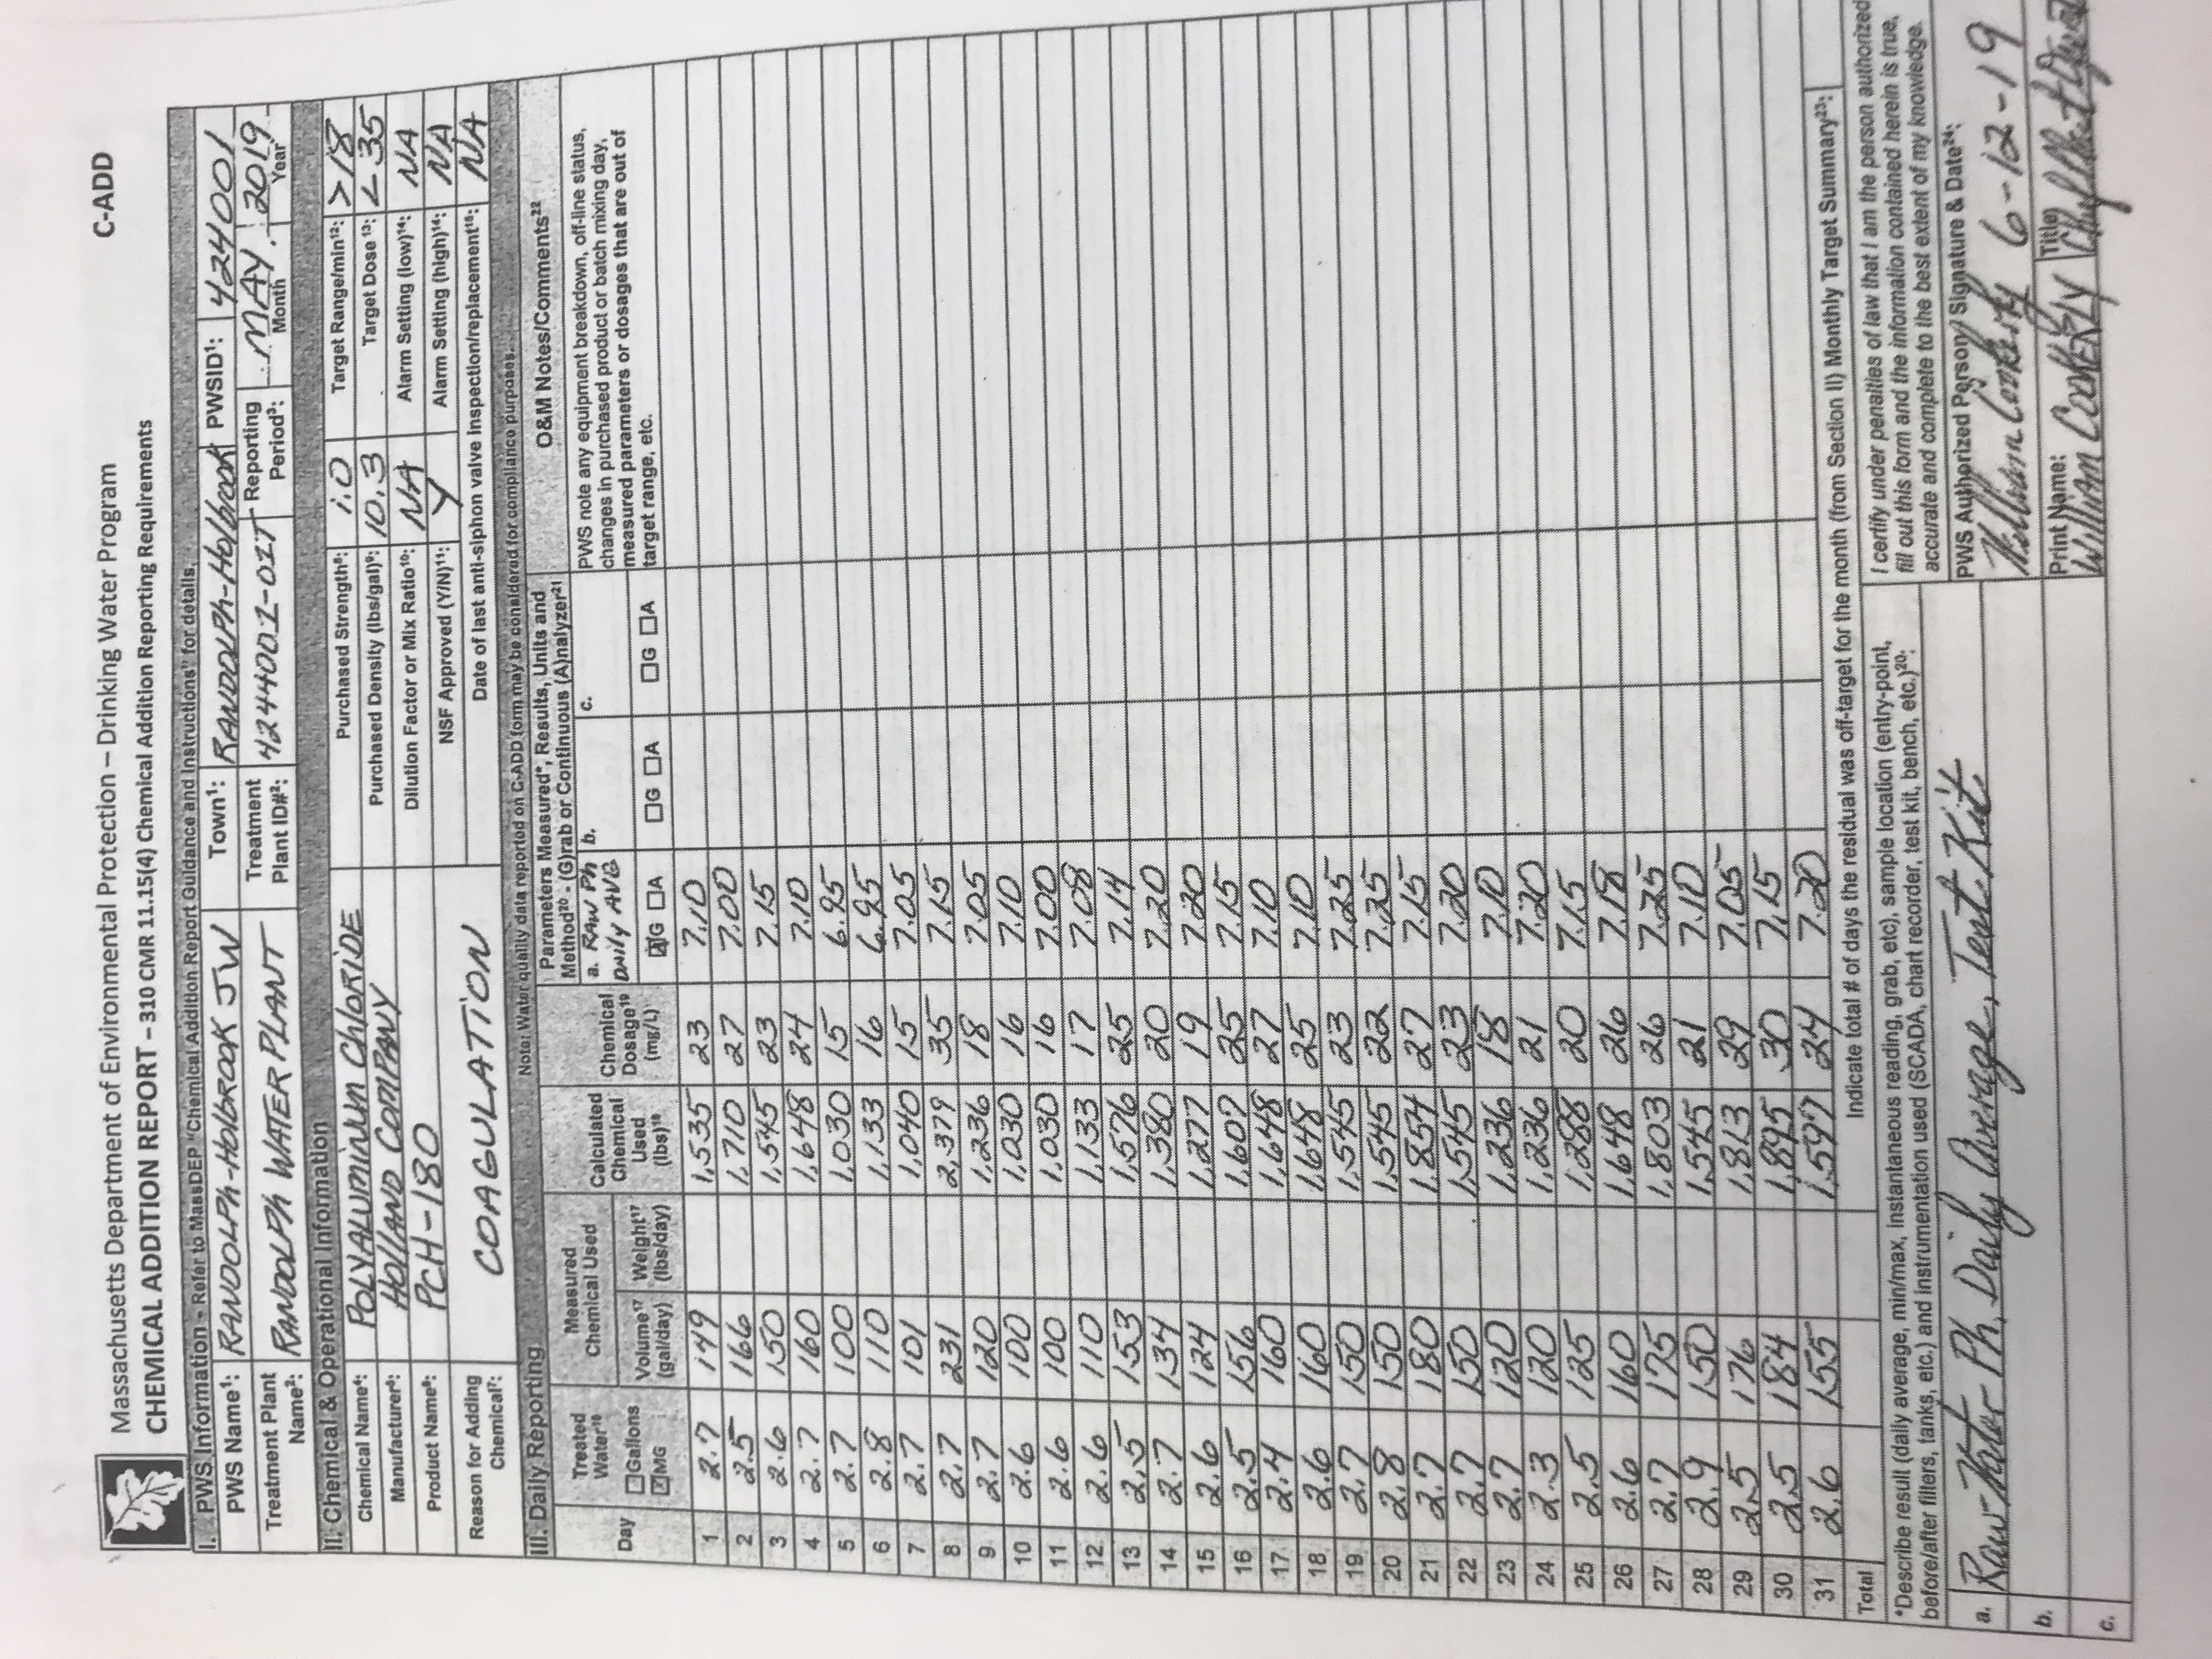 Massachusetts Department of Environmental Protection – Drinking Water Program C-ADD
CHEMICAL ADDITION REPORT – 310 CMR 11.15(4) Chemical Addition Reporting Requirements
I. PWS Information - Refer to MassDEP "Chemical Addition Report Guidance and Instructions" for details.
PWS Name¹: RANDOLPH-HOLBROOK JW Town¹: RANDOLPH-HOLBROOK PWSID¹: 4244001
Treatment Plant Name²: RANDOLPH WATER PLANT Treatment Plant ID#²: 4244001-01T Reporting Period³: MAY 2019
Month Year
II. Chemical & Operational Information
Chemical Name⁴: POLYALUMINUM CHLORIDE Purchased Strength⁸: 1.0 Target Range/min¹²: >18
Manufacturer⁵: HOLLAND COMPANY Purchased Density (lbs/gal)⁹: 10.3 Target Dose¹³: <35
Product Name⁶: PCH-180 Dilution Factor or Mix Ratio¹⁰: NA Alarm Setting (low)¹⁴: NA
NSF Approved (Y/N)¹¹: Y Alarm Setting (high)¹⁴: NA
Reason for Adding Chemical⁷: COAGULATION Date of last anti-siphon valve inspection/replacement¹⁵: NA
Note: Water quality data reported on C-ADD form may be considered for compliance purposes.
III. Daily Reporting
Day Treated Water¹⁶ Measured Chemical Used Calculated Chemical Used (lbs)¹⁸ Chemical Dosage¹⁹ (mg/L) Parameters Measured*, Results, Units and Method²⁰ - (G)rab or Continuous (A)nalyzer²¹ O&M Notes/Comments²²
☐Gallons ☑MG Volume¹⁷ (gal/day) Weight¹⁷ (lbs/day) a. RAW Ph DAily AVG b. c.
☒G ☐A ☐G ☐A ☐G ☐A
PWS note any equipment breakdown, off-line status, changes in purchased product or batch mixing day, measured parameters or dosages that are out of target range, etc.
1 2.7 149 1,535 23 7.10
2 2.5 166 1,710 27 7.00
3 2.6 150 1,545 23 7.15
4 2.7 160 1,648 24 7.10
5 2.7 100 1,030 15 6.95
6 2.8 110 1,133 16 6.95
7 2.7 101 1,040 15 7.05
8 2.7 231 2,379 35 7.15
9 2.7 120 1,236 18 7.05
10 2.6 100 1,030 16 7.10
11 2.6 100 1,030 16 7.00
12 2.6 110 1,133 17 7.08
13 2.5 153 1,576 25 7.14
14 2.7 134 1,380 20 7.20
15 2.6 124 1,277 19 7.20
16 2.5 156 1,607 25 7.15
17 2.4 160 1,648 27 7.10
18 2.6 160 1,648 25 7.10
19 2.7 150 1,545 23 7.25
20 2.8 150 1,545 22 7.25
21 2.7 180 1,854 27 7.15
22 2.7 150 1,545 23 7.20
23 2.7 120 1,236 18 7.10
24 2.3 120 1,236 21 7.20
25 2.5 125 1,288 20 7.15
26 2.6 160 1,648 26 7.18
27 2.7 175 1,803 26 7.25
28 2.9 150 1,545 21 7.10
29 2.5 176 1,813 29 7.05
30 2.5 184 1,895 30 7.15
31 2.6 155 1,597 24 7.20
Total Indicate total # of days the residual was off-target for the month (from Section II) Monthly Target Summary²³:
*Describe result (daily average, min/max, instantaneous reading, grab, etc), sample location (entry-point, before/after filters, tanks, etc.) and instrumentation used (SCADA, chart recorder, test kit, bench, etc.)²⁰:
a. Raw Water Ph, Daily Average, Test Kit
b.
c.
I certify under penalties of law that I am the person authorized fill out this form and the information contained herein is true, accurate and complete to the best extent of my knowledge.
PWS Authorized Person Signature & Date²⁴:
William Conkery 6-12-19
Print Name: Title:
William ConkERly